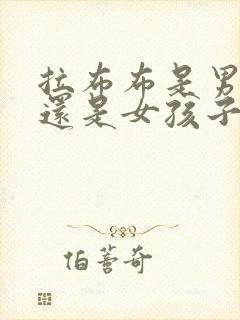 拉布布是男
還是女孩子
伯蓍奇